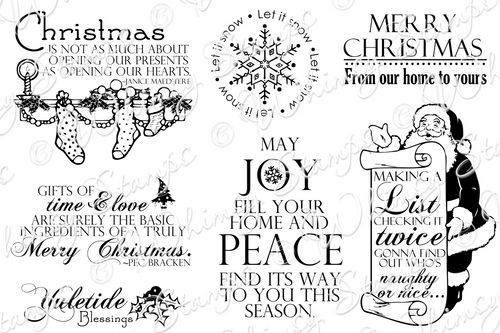 Christmas
IS NOT AS MUCH ABOUT
OPENING OUR PRESENTS
AS OPENING OUR HEARTS.
~JANICE MAEDITERE
Let it snow • Let it snow • Let it snow •
MERRY
CHRISTMAS
From our home to yours
GIFTS OF
time & love
ARE SURELY THE BASIC
INGREDIENTS OF A TRULY
Merry Christmas.
~PEG BRACKEN
Yuletide
Blessings
MAY
JOY
FILL YOUR
HOME AND
PEACE
FIND ITS WAY
TO YOU THIS
SEASON.
MAKING A
List
CHECKING IT
twice
GONNA FIND
OUT WHO'S
naughty
or nice...